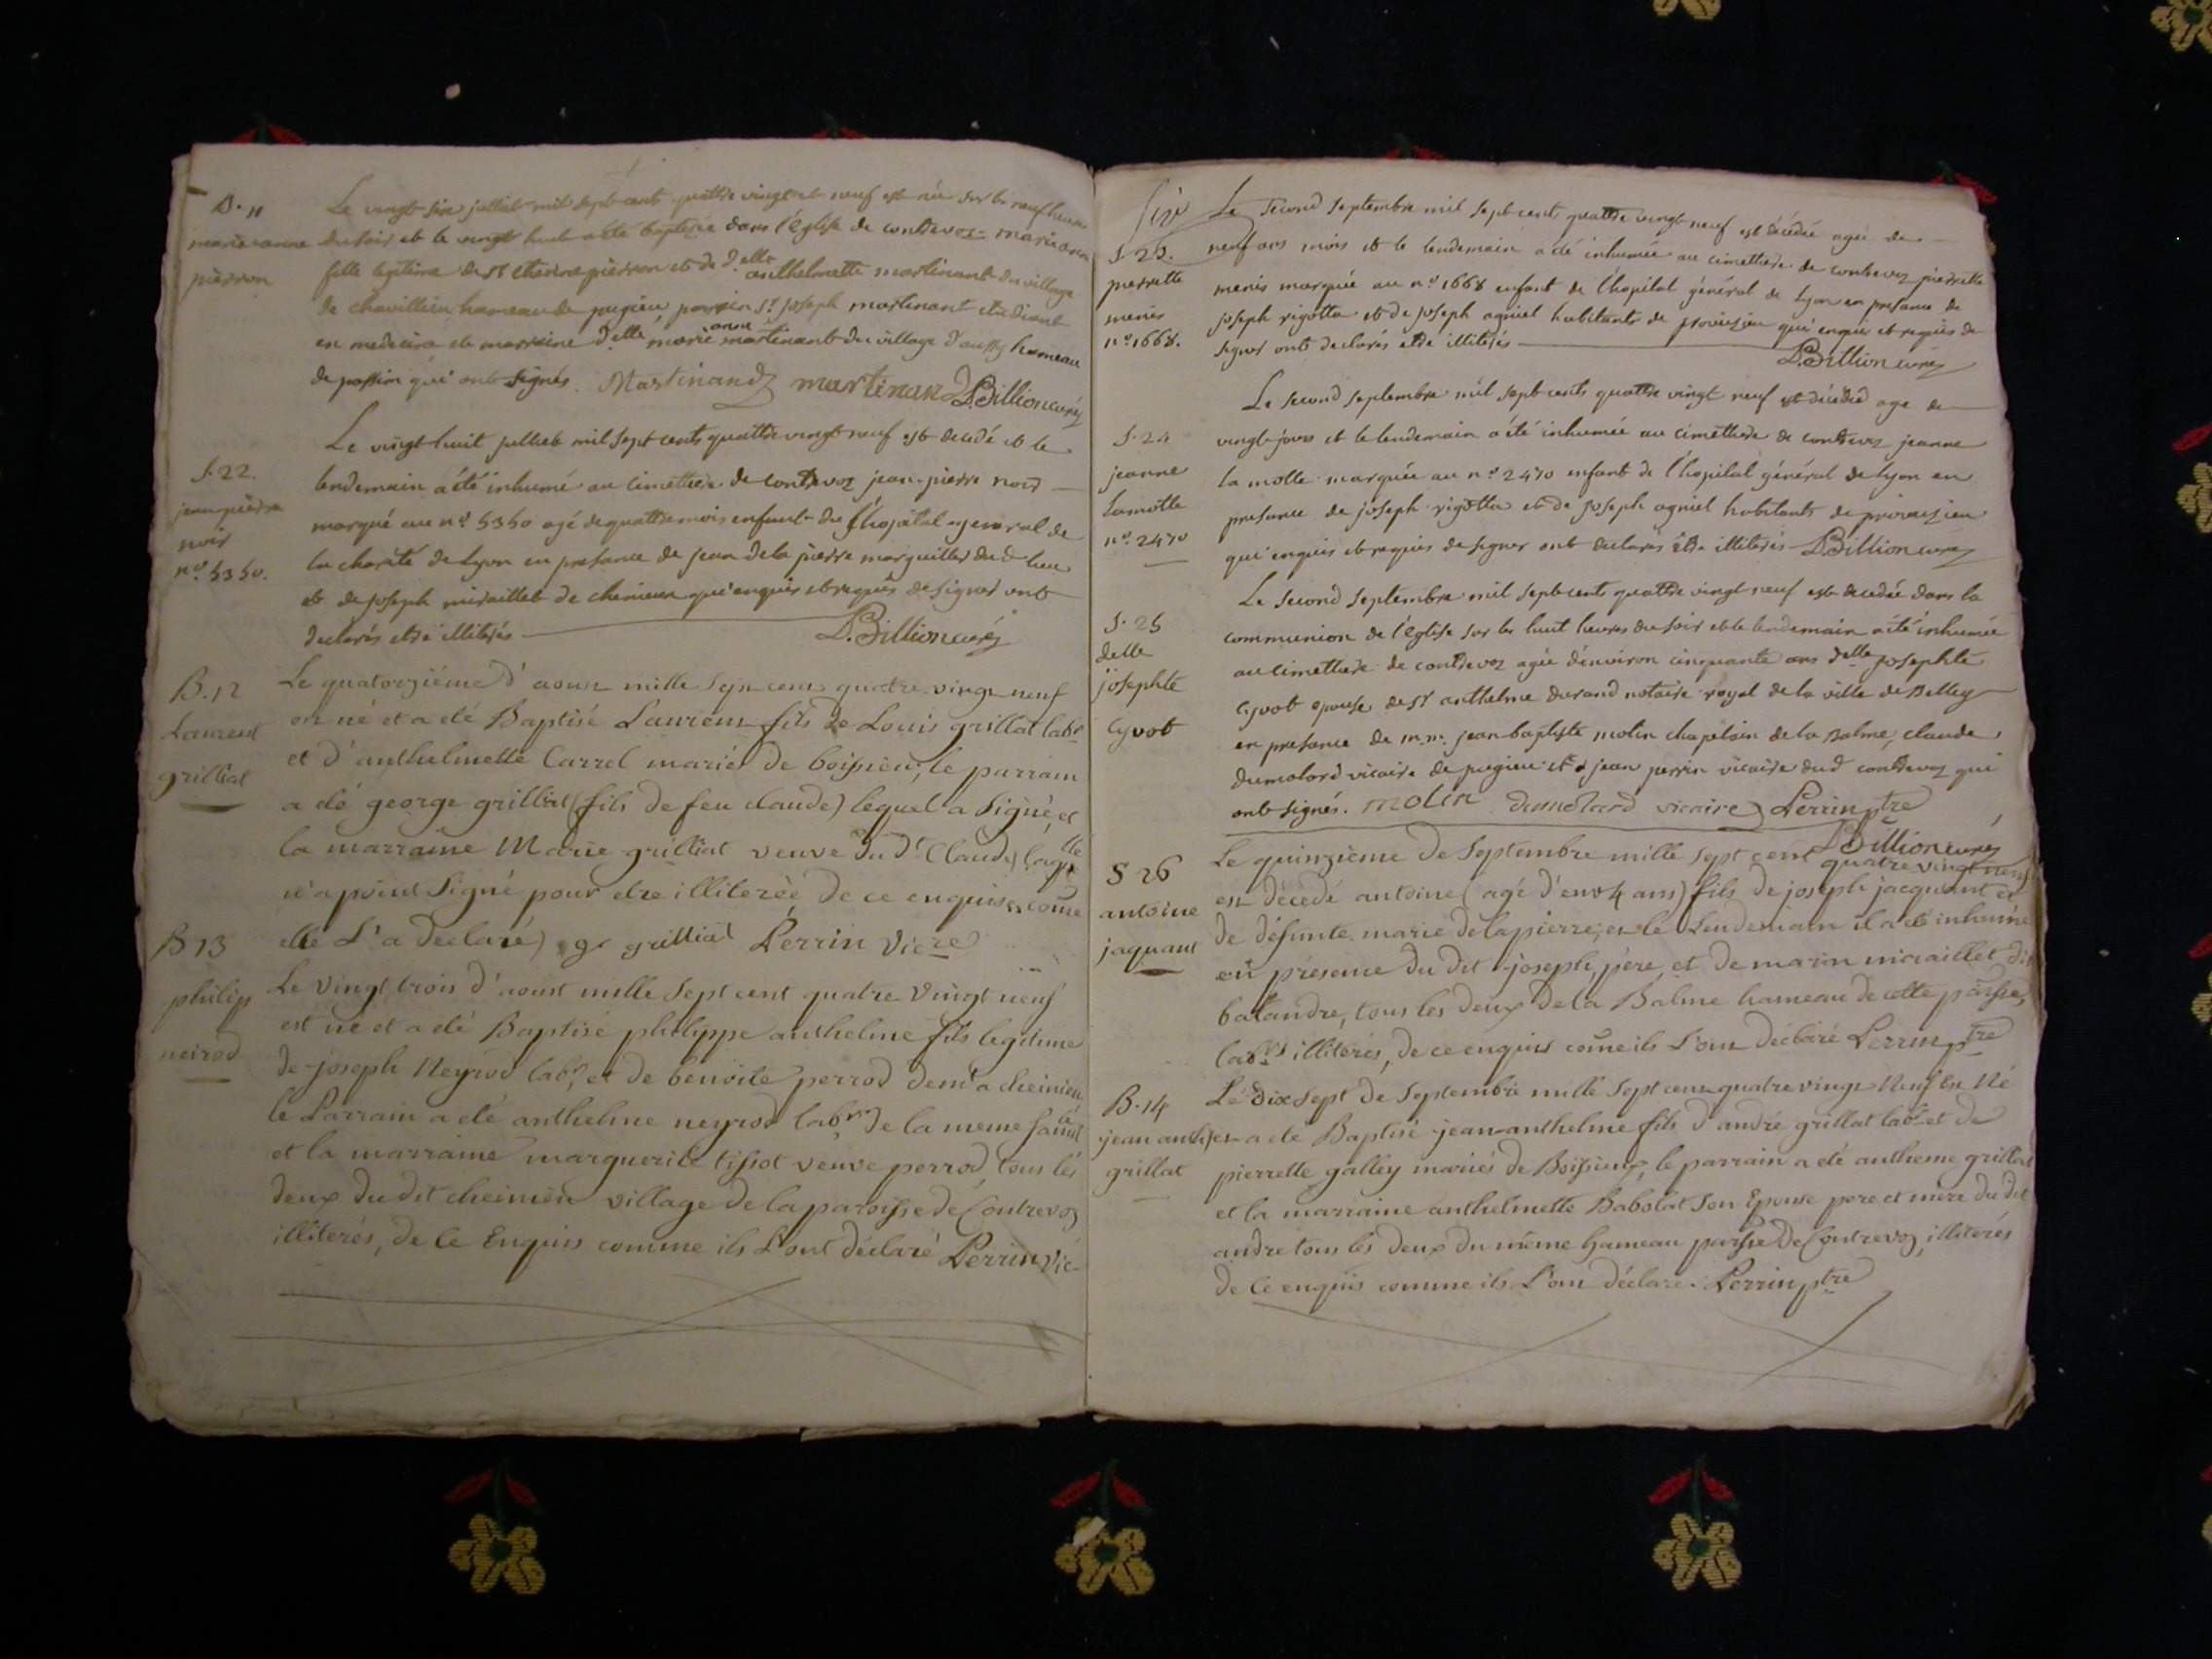 B. 11
marie anne
pierron
Le vingt six julliet mil sept cents quattre vingt et neuf est née sur les neuf heures
du soir et le vingt huit a été baptisée dans l'église de contrevoz marie anne
fille legitime de sr etienne pierron et de delle anthelmette martinant du village
de chavillieu hameau de pugieu, parrein sr joseph martinant etudiant
en medecine et marraine delle marie anne martinant du village d'aussy hameau
de passin qui ont signés. Martinand martinand D. Billion curé
S. 22.
jean pierre
noir
no. 5350.
Le vingt huit julliet mil sept cents quattre vingt neuf est decedé et le
lendemain a été inhumé au cimettiere de contrevoz jean pierre noir
marqué au no. 5350 agé de quattre mois enfant de l'hopital general de
la charité de Lyon en presance de jean de la pierre marguiller du d lieu
et de joseph miraillet de cheimieu qui enquis et requis de signer ont
declarés etre illiterés D. Billion curé
B. 12
Laurent
grilliat
Le quatorzième d'aoust mille sept cent quatre vingt neuf
est né et a été Baptisé Laurent fils de Louis grillat labr
et d'anthelmette Carrel mariés de boissieu; le parrain
a été george grilliat (fils de feu claude) lequel a signé, et
la marraine Marie grilliat veuve du dt Claude) laqlle
n'a point signé pour etre illiterée de ce enquise, come
elle l'a declaré) ge grilliat Perrin Vicre
B 13
philip
neirod
Le vingt trois d'aoust mille sept cent quatre vingt neuf
est né et a été Baptisé philippe anthelme fils legitime
de joseph Neyrod labr, et de benoite perrod demt a cheimieu
le Parrain a été anthelme neyrod labr de la meme famille
et la marraine marguerite tissot veuve perrod, tous les
deux du dit cheimieu village de la paroisse de Contrevoz
illiterés, de ce Enquis comme ils l'ont déclaré Perrin Vic
S. 23.
pierrette
menis
no. 1668.
Le second septembre mil sept cents quattre vingt neuf est décédée agée de
neuf ans mois et le lendemain a été inhumée au cimettiere de contrevoz pierrette
menis marquée au no. 1668 enfant de l'hopital général de Lyon en presance de
joseph rigottu et de joseph agniel habitants de proveisieu qui enquis et requis de
signer ont declarés etre illiterés D. Billion curé
S. 24
jeanne
Lamotte
no. 2470
Le second septembre mil sept cents quattre vingt neuf est décédée agé de
vingt jours et le lendemain a été inhumée au cimethiere de contrevoz jeanne
la motte marquée au no. 2470 enfant de l'hopital général de Lyon en
presance de joseph rigottu et de joseph agniel habitants de proveisieu
qui enquis et requis de signer ont declarés etre illiterés D. Billion curé
S. 25
delle
josephte
Gyvot
Le second septembre mil sept cents quattre vingt neuf est decedée dans la
communion de l'église sur les huit heures du soir et le lendemain a été inhumée
au cimettiere de contrevoz agée d'environ cinquante ans delle josephte
Gyvot epouse de sr anthelme durand notaire royal de la ville de Belley
en presance de m.m. jean baptiste molin chapelain de la Balme, claude
dumolard vicaire de pugieu et jean perrin vicaire dud contrevoz qui
ont signés. molin dumolard vicaire Perrin ptre
D. Billion curé
S 26
antoine
jaquant
Le quinzième de Septembre mille sept cent quatre vingt neuf
est décédé antoine (agé d'env 4 ans) fils de joseph jacquant et
de défunte marie delapierre, et le Lendemain il a été inhumé
en présence du dit joseph, père, et de marin miraillet dit
balandre, tous les deux de la Balme hameau de cette parsse
labrs illiterés, de ce enquis come ils l'ont déclaré Perrin ptre
B. 14
jean anth
grillat
Le dix sept de Septembre mille sept cent quatre vingt Neuf Est Né
et a été Baptisé jean anthelme fils d'andré grillat labr et de
pierrette galley mariés de Boissieux, le parrain a été antheme grillat
et la marraine anthelmette Babolat son Epouse pere et mere du dit
andre tous les deux du même hameau parsse de Contrevoz, illiterés
de ce enquis comme ils l'ont déclaré. Perrin ptre